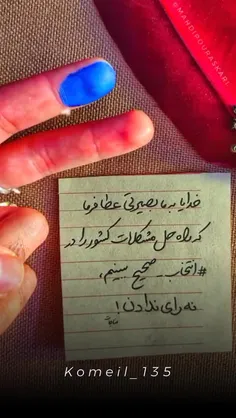 @MAHDIPOURASKARI
خدایا به ما بصیرتی عطا فرما
که راه حل مشکلات کشور را در
#انتخاب_صحیح ببینیم،
نه رای ندادن!
Komeil_135